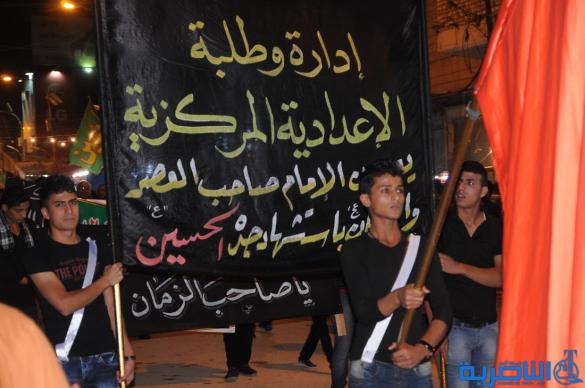 إدارة وطلبة
الإعدادية المركزية
الامام صاحب العصر
باستشهاد جده الحسين "ع"
يا صاحب الزمان
THE POP
الناصرية